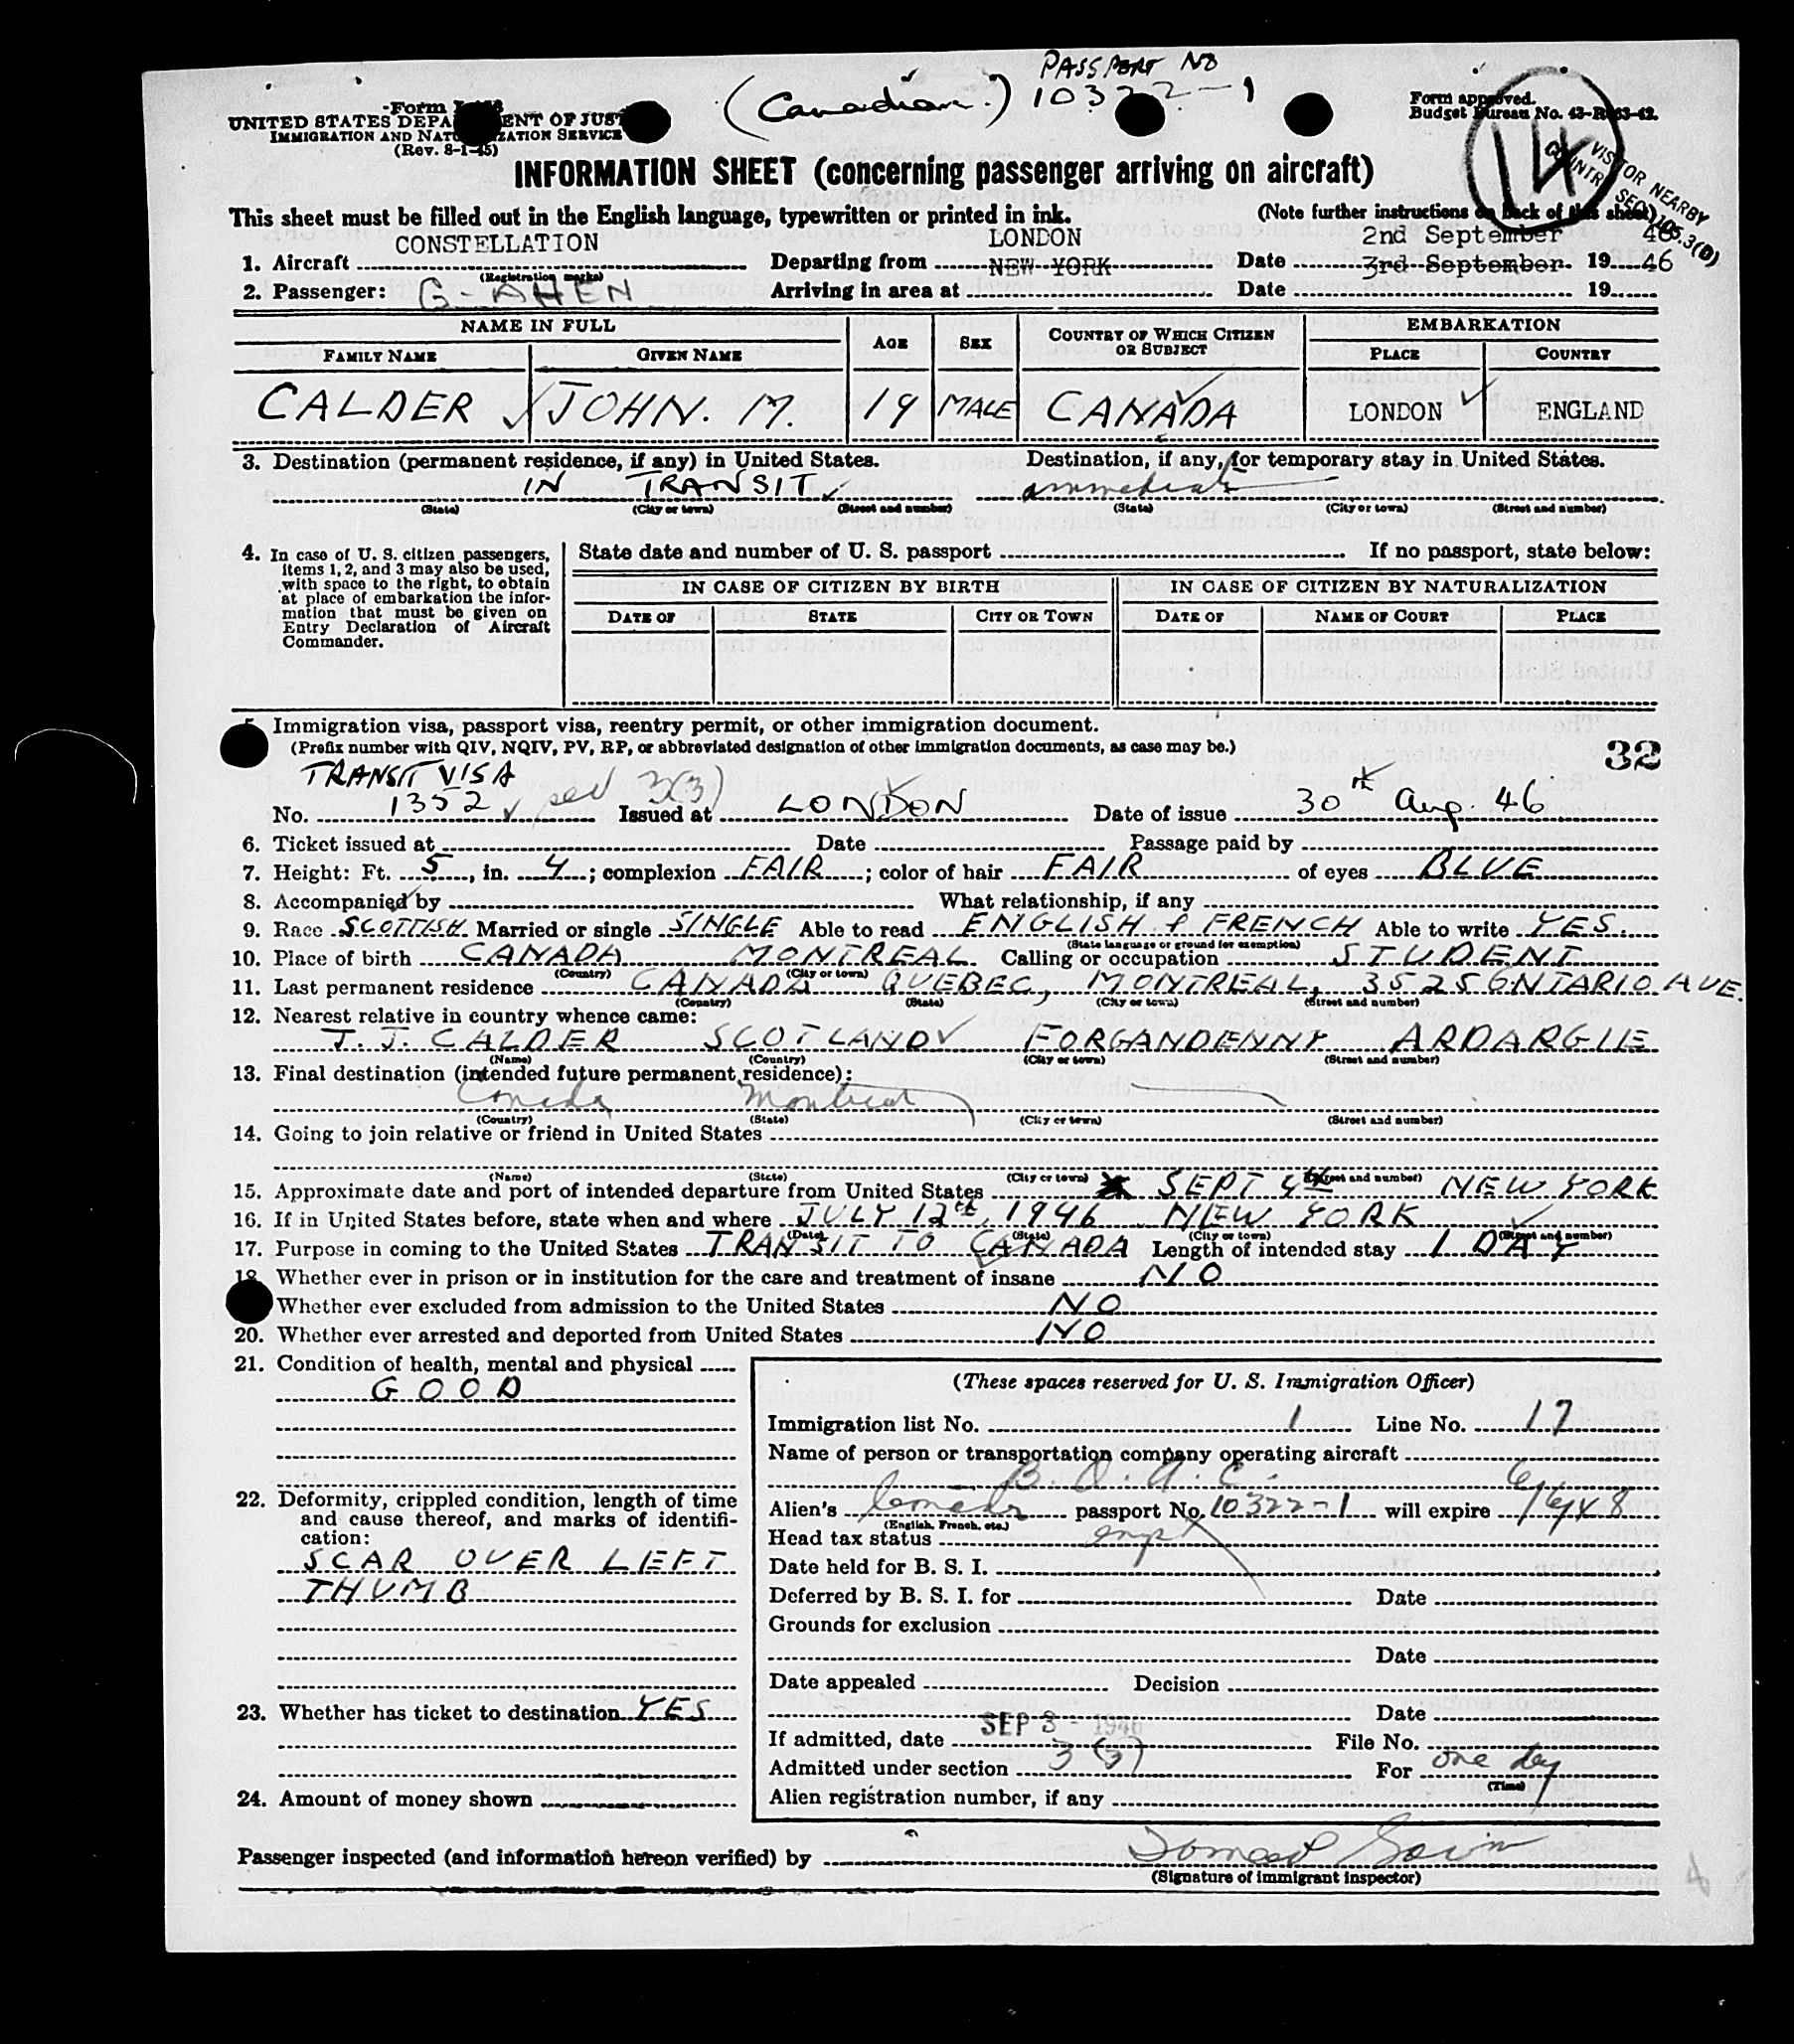 PASSPORT NO
(Canadian.) 10322-1
Form
UNITED STATES DEPA ENT OF JUST
IMMIGRATION AND NATU IZATION SERVICE
(Rev. 8-1-45)
Form approved.
Budget Bureau No. 43-R
14
VISITOR NEARBY
COUNTR SEC 105.3(B)
INFORMATION SHEET (concerning passenger arriving on aircraft)
This sheet must be filled out in the English language, typewritten or printed in ink. (Note further instructions on back of this sheet)
1. Aircraft CONSTELLATION Departing from LONDON Date 2nd September 46
(Registration marks) NEW YORK 3rd September. 19 46
2. Passenger: G-AHEN Arriving in area at Date 19
NAME IN FULL AGE SEX COUNTRY OF WHICH CITIZEN OR SUBJECT EMBARKATION
FAMILY NAME GIVEN NAME PLACE COUNTRY
CALDER JOHN. M. 19 MALE CANADA LONDON ENGLAND
3. Destination (permanent residence, if any) in United States. Destination, if any, for temporary stay in United States.
IN TRANSIT immediate
(State) (City or town) (Street and number) (State) (City or town) (Street and number)
4. In case of U. S. citizen passengers,
items 1, 2, and 3 may also be used,
with space to the right, to obtain
at place of embarkation the infor-
mation that must be given on
Entry Declaration of Aircraft
Commander.
State date and number of U. S. passport If no passport, state below:
IN CASE OF CITIZEN BY BIRTH IN CASE OF CITIZEN BY NATURALIZATION
DATE OF STATE CITY OR TOWN DATE OF NAME OF COURT PLACE
5 Immigration visa, passport visa, reentry permit, or other immigration document.
(Prefix number with QIV, NQIV, PV, RP, or abbreviated designation of other immigration documents, as case may be.)
32
TRANSIT VISA
No. 1352 3(3) Issued at LONDON Date of issue 30th Aug. 46
6. Ticket issued at Date Passage paid by
7. Height: Ft. 5, in. 4; complexion FAIR; color of hair FAIR of eyes BLUE
8. Accompanied by What relationship, if any
9. Race SCOTTISH. Married or single SINGLE Able to read ENGLISH & FRENCH Able to write YES.
(State language or ground for exemption)
10. Place of birth CANADA MONTREAL. Calling or occupation STUDENT
(Country) (City or town)
11. Last permanent residence CANADA QUEBEC, MONTREAL, 3525 ONTARIO AVE.
(Country) (State) (City or town) (Street and number)
12. Nearest relative in country whence came:
J. J. CALDER SCOTLAND FORGANDENNY ARDARGIE
(Name) (Country) (City or town) (Street and number)
13. Final destination (intended future permanent residence):
Canada Montreal
(Country) (State) (City or town) (Street and number)
14. Going to join relative or friend in United States
(Name) (State) (City or town) (Street and number)
15. Approximate date and port of intended departure from United States SEPT 4th NEW YORK
16. If in United States before, state when and where JULY 12th, 1946 NEW YORK
(Date) (State) (City or town) (Street and number)
17. Purpose in coming to the United States TRANSIT TO CANADA Length of intended stay 1 DAY
18 Whether ever in prison or in institution for the care and treatment of insane NO
Whether ever excluded from admission to the United States NO
20. Whether ever arrested and deported from United States NO
21. Condition of health, mental and physical
GOOD
22. Deformity, crippled condition, length of time
and cause thereof, and marks of identifi-
cation:
SCAR OVER LEFT
THUMB
23. Whether has ticket to destination YES
24. Amount of money shown
(These spaces reserved for U. S. Immigration Officer)
Immigration list No. 1 Line No. 17
Name of person or transportation company operating aircraft
B. O. A. C.
Alien's Canada passport No. 10322-1 will expire 6/6/48
(English, French, etc.)
Head tax status
Date held for B. S. I.
Deferred by B. S. I. for Date
Grounds for exclusion
Date
Date appealed Decision
Date
If admitted, date SEP 3 - 1946 File No.
Admitted under section 3 (3) For one day
(Time)
Alien registration number, if any
Passenger inspected (and information hereon verified) by
(Signature of immigrant inspector)
4